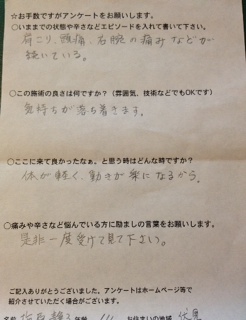 ☆お手数ですがアンケートをお願いします。
○いままでの状態や辛さなどエピソードを入れて書いて下さい。
肩こり、頭痛、右腕の痛みなどが
続いている。
○この施術の良さは何ですか？（雰囲気、技術などでもOKです）
気持ちが落ち着きます。
○ここに来て良かったなぁ。と思う時はどんな時ですか？
体が軽く、動きが楽になるから。
○痛みや辛さなど悩んでいる方に励ましの言葉をお願いします。
是非一度受けて見て下さい。
ご記入ありがとうございました。アンケートはホームページ等で
紹介させていただく場合がございます。
名前 年齢 お住まいの地域 伏見